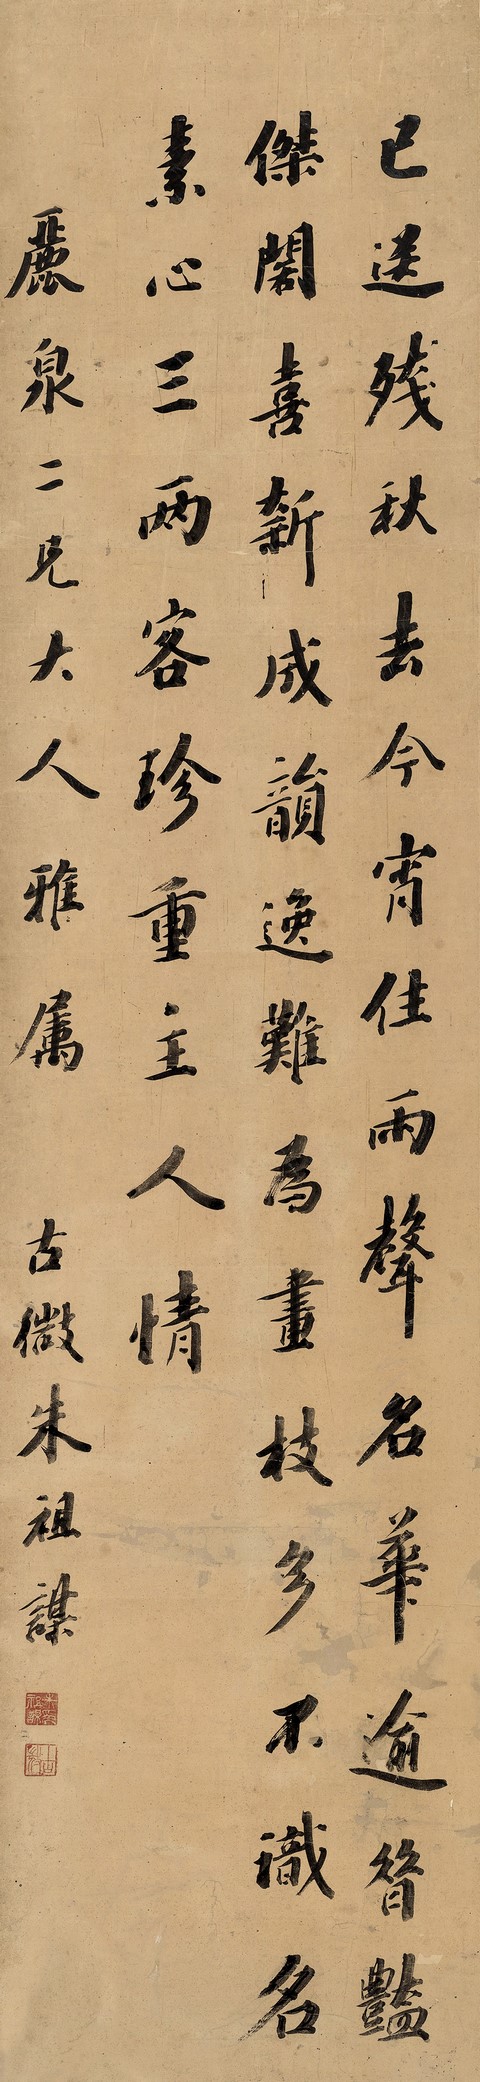 已送殘秋去今宵住雨聲名華逾昔豔
傑閣喜新成韻逸難為畫枝多不識名
素心三兩客珍重主人情
麗泉二兄大人雅属 古微朱祖謀